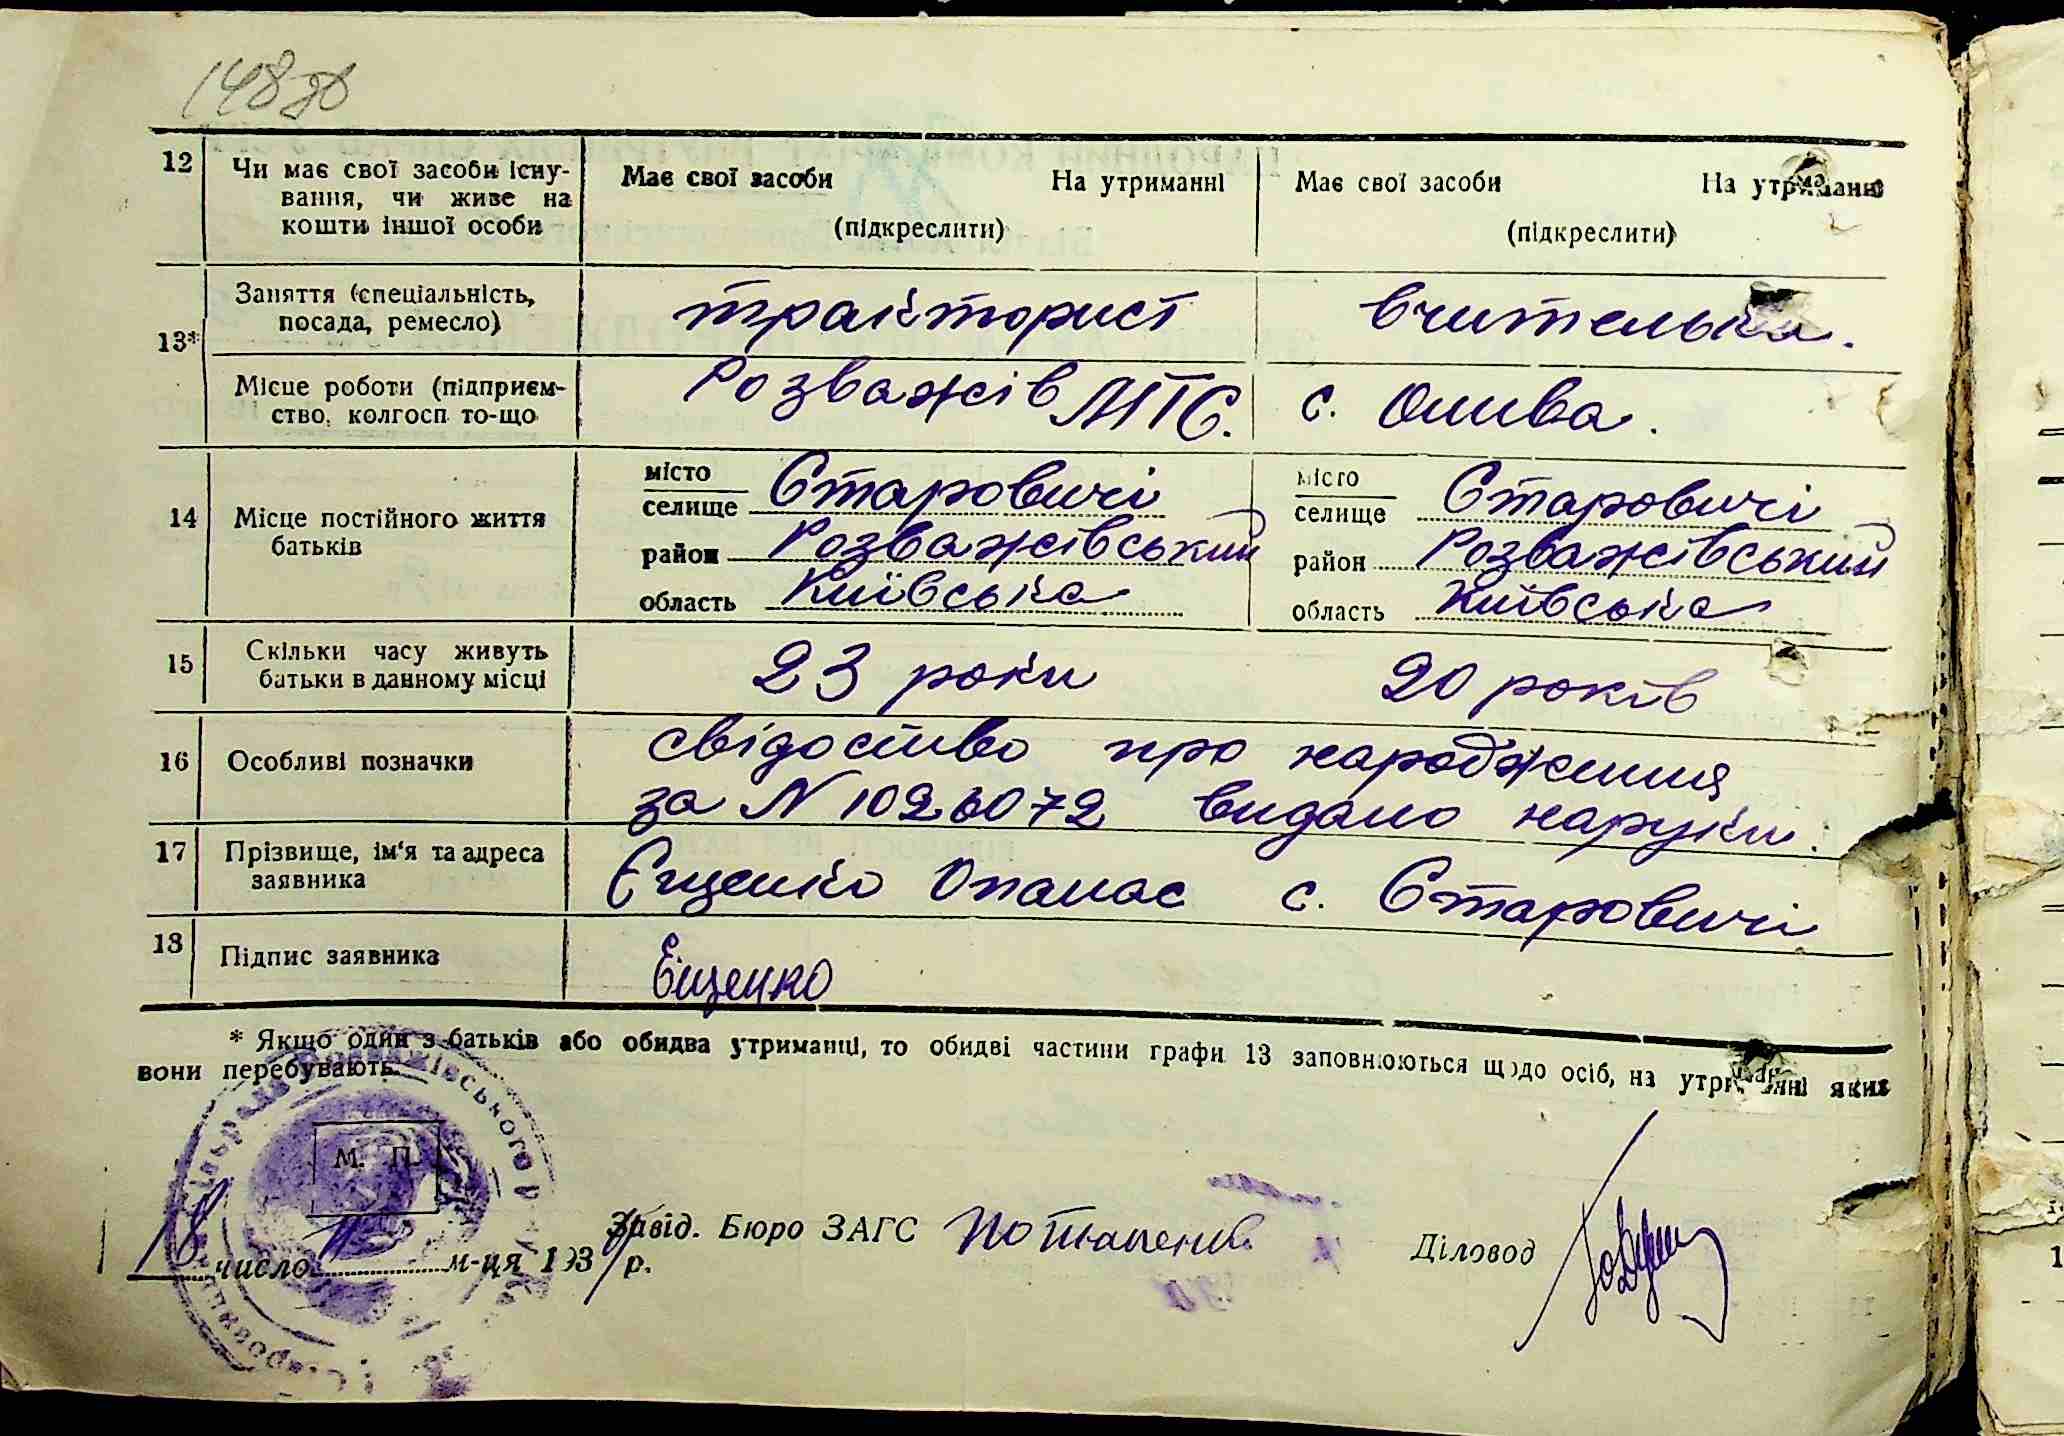 148 зв
12 Чи має свої засоби існу- Має свої засоби На утриманні Має свої засоби На утриманні
вання, чи живе на
кошти іншої особи (підкреслити) (підкреслити)
13* Заняття (спеціальність, тракторист вчителька.
посада, ремесло)
Місце роботи (підприєм- Розважів МТС. с. Олива.
ство, колгосп то-що
14 Місце постійного життя місто Старовичі місто Старовичі
батьків селище селище
район Розважівський район Розважівський
область Київська область Київська
15 Скільки часу живуть 23 роки 20 років
батьки в данному місці
16 Особливі позначки свідоство про народження
за N 1026072 видано наруки.
17 Прізвище, ім'я та адреса Єщенко Опанас с. Старовичі
заявника
13 Підпис заявника Єщенко
* Якщо один з батьків або обидва утриманці, то обидві частини графи 13 заповнюються щодо осіб, на утриманні яких
вони перебувають.
М. П.
Завід. Бюро ЗАГС Діловод
18 число 11 м-ця 193 р.